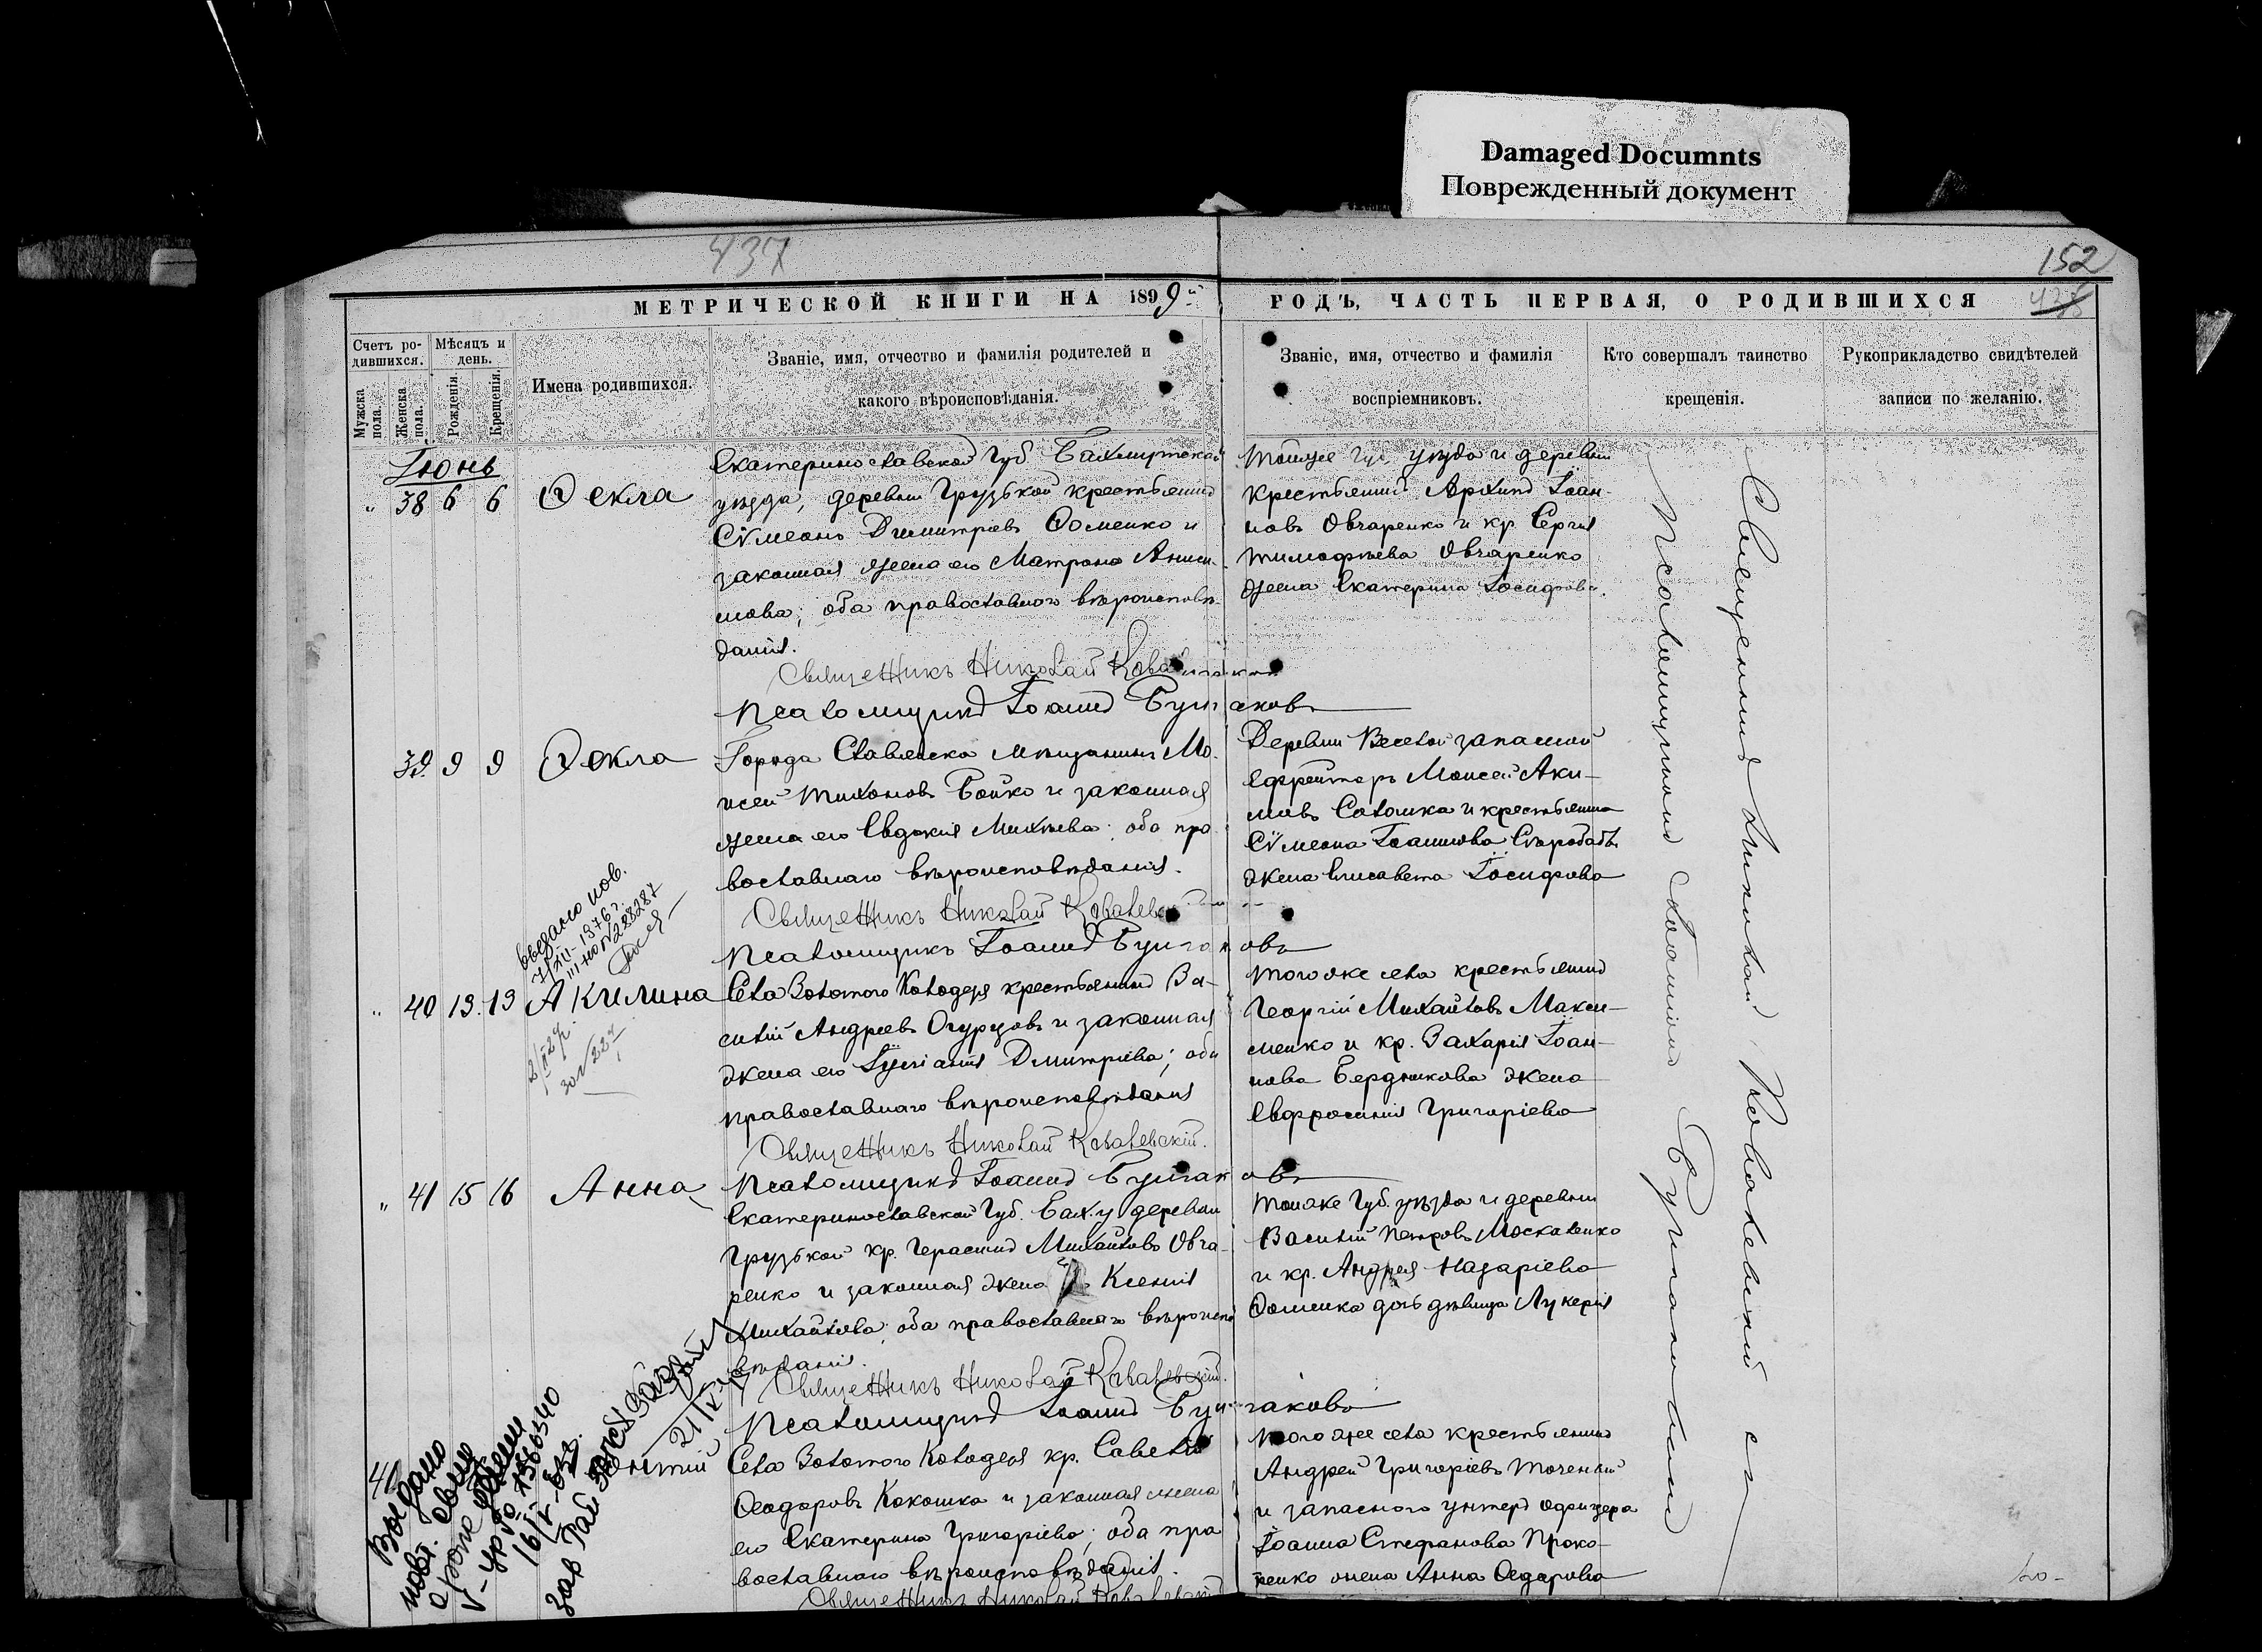 Damaged Documnts
Поврежденный документ
437
152
МЕТРИЧЕСКОЙ КНИГИ НА 1899й
РОДЪ, ЧАСТЬ ПЕРВАЯ, О РОДИВШИХСЯ
Счетъ ро-
дившихся.
Мѣсяцъ и
день.
Мужска
пола.
Женска
пола.
Рожденія.
Крещенія.
Имена родившихся.
Званіе, имя, отчество и фамилія родителей и
какого вѣроисповѣданія.
Званіе, имя, отчество и фамилія
воспріемниковъ.
Кто совершалъ таинство
крещенія.
Рукоприкладство свидѣтелей
записи по желанію.
Іюнь
" 38 6 6 Ѳекла
Екатеринославской Губ. Бахмутскаго
уѣзда, деревни Грузской крестьянинъ
Сѵмеонъ Димитріевъ Ѳоменко и
законная жена его Матрона Аниси-
мова; оба православнаго вѣроисповѣ-
данія.
Священникъ Николай Ковалевскій
Псаломщикъ Іоаннъ Булгаковъ
Тойже Губ. уѣзда и деревни
крестьянинъ Архипъ Іоан-
новъ Овчаренко и кр. Сергія
Тимофѣева Овчаренко
жена Екатерина Іосифова.
39 9 9 Ѳекла
Города Славянска мѣщанинъ Мо-
исей Тихоновъ Бойко и законная
жена его Евдокія Михѣева; оба пра-
вославнаго вѣроисповѣданія.
Священникъ Николай Ковалевскій
Псаломщикъ Іоаннъ Булгаковъ
Деревни Веселой запасной
ефрейторъ Моисей Аки-
мовъ Соломка и крестьянина
Сѵмеона Іоаннова
жена Елисавета Іосифова
" 40 13 13 Акилина
Села Золотого Колодезя крестьянинъ Ва-
силій Андреевъ Огурцовъ и законная
жена его Іуліанія Димитріева; оба
православнаго вѣроисповѣданія
Священникъ Николай Ковалевскій.
Псаломщикъ Іоаннъ Булгаковъ
Того же села крестьянинъ
Георгій Михайловъ Макси-
менко и кр. Захарія Іоан-
нова Бердникова жена
Евфросинія Григоріева
" 41 15 16 Анна
Екатеринославской Губ. Бах. у. деревни
Грузской кр. Герасимъ Михайловъ Овча-
ренко и законная жена его Ксенія
Михайлова; оба православнаго вѣроиспо-
вѣданія.
Священникъ Николай Ковалевскій.
Псаломщикъ Іоаннъ Булгаковъ
Тойже Губ. уѣзда и деревни
Василій Петровъ Москаленко
и кр. Андрея Назаріева
Ѳоменка дочь дѣвица Лукерія
Села Золотого Колодезя кр. Савелій
Ѳеодоровъ Кокошко и законная жена
его Екатерина Григоріева; оба пра
вославнаго вѣроисповѣданія.
Священникъ Николай Ковалевскій
Того же села крестьянинъ
Андрей Григоріевъ Точеный
и запасного унтеръ офицера
Іоанна Стефанова Проко-
пенко жена Анна Ѳедорова
Священникъ Николай Ковалевскій съ
Псаломщикомъ Іоанномъ Булгаковымъ